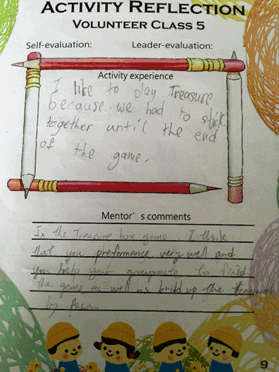 ACTIVITY REFLECTION
VOLUNTEER CLASS 5
Self-evaluation: Leader-evaluation:
Activity experience
I like to play Treasure
because we had to stick
together until the end
of the game.
Mentor's comments
In the Treasure box game. I think
that you preformance very well and
you help your groupmate to finish
the game as well as build up the
by
9